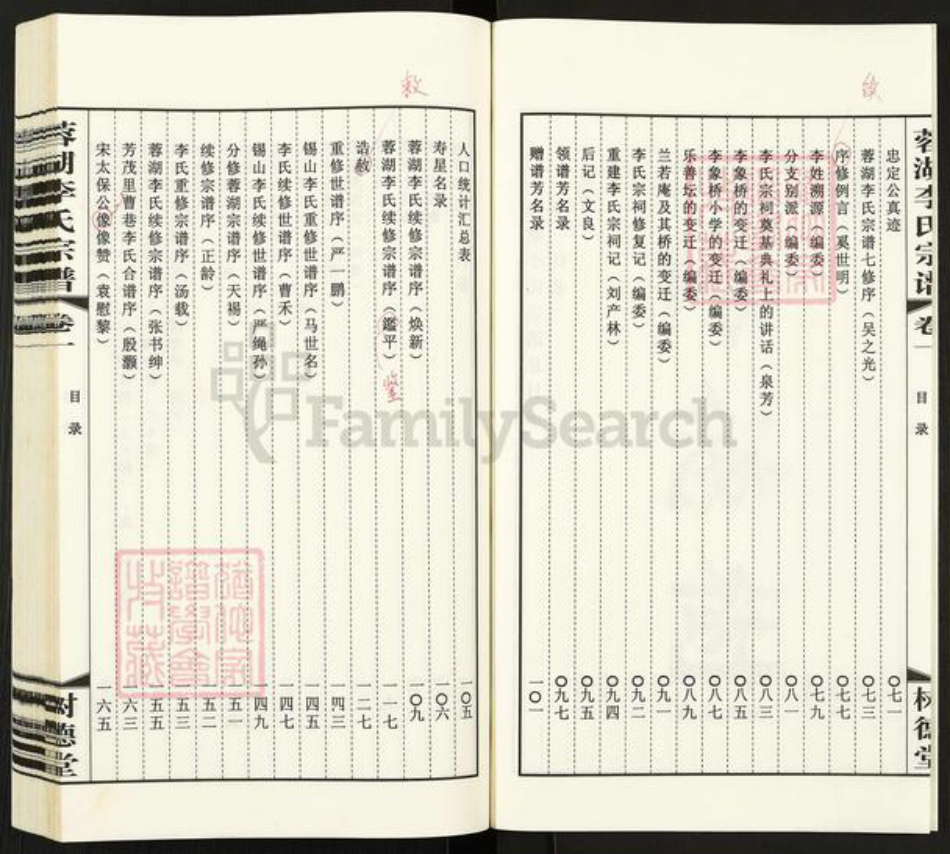 蓉湖李氏宗谱
卷一
目录
树德堂
续
忠定公真迹 〇七一
蓉湖李氏宗谱七修序（吴之光） 〇七三
序修例言（奚世明） 〇七七
李姓溯源（编委） 〇七九
分支别派（编委） 〇八一
李氏宗祠奠基典礼上的讲话（泉芳） 〇八三
李象桥的变迁（编委） 〇八五
李象桥小学的变迁（编委） 〇八七
乐善坛的变迁（编委） 〇八九
兰若庵及其桥的变迁（编委） 〇九一
李氏宗祠修复记（编委） 〇九二
重建李氏宗祠记（刘产林） 〇九四
后记（文良） 〇九五
领谱芳名录 〇九七
赠谱芳名录 一〇一
敕
人口统计汇总表 一〇五
寿星名录 一〇六
蓉湖李氏续修宗谱序（焕新） 一〇九
蓉湖李氏续修宗谱序（鑑平） 一一七
鉴
诰赦 一二七
重修世谱序（严一鹏） 一四三
锡山李氏重修世谱序（马世名） 一四五
李氏续修世谱序（曹禾） 一四七
锡山李氏续修世谱序（严绳孙） 一四九
分修蓉湖宗谱序（天祸） 一五一
续修宗谱序（正龄） 一五二
李氏重修宗谱序（汤载） 一五三
蓉湖李氏续修宗谱序（张书绅） 一五五
芳茂里曹巷李氏合谱序（殷灏） 一六三
宋太保公像像赞（袁慰黎） 一六五
蓉湖李氏宗谱
卷一
目录
树德堂
FamilySearch